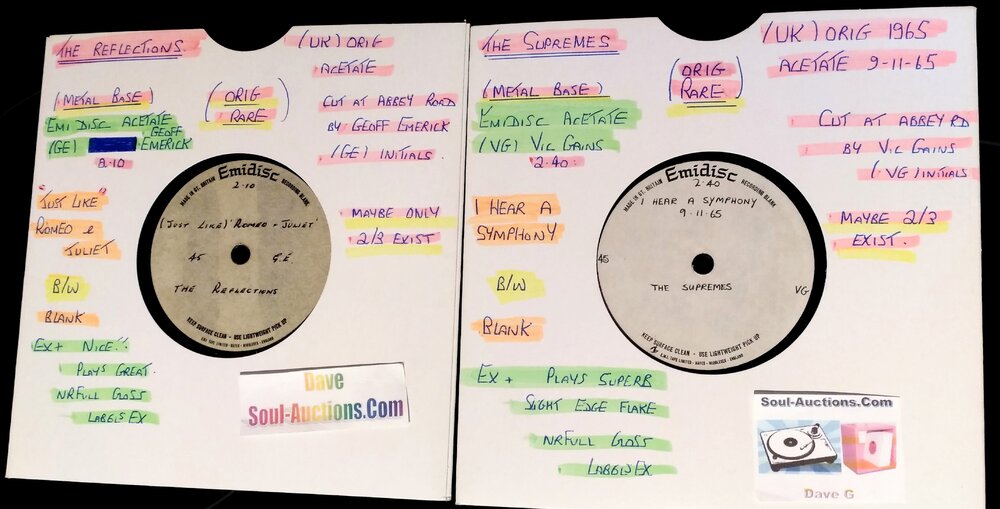 THE REFLECTIONS.
(UK) ORIG
ACETATE
(METAL BASE)
(ORIG
RARE)
EMIDISC ACETATE
(GE) GEOFF EMERICK
CUT AT ABBEY ROAD
BY GEOFF EMERICK
(GE) INITIALS.
"JUST LIKE"
ROMEO &
JULIET
MAYBE ONLY
2/3 EXIST
B/W
BLANK
EX+ NICE!!
PLAYS GREAT.
NR FULL GLOSS
LABELS EX
Emidisc
MADE IN GT. BRITAIN
RECORDING BLANK
2-10
(JUST LIKE) 'ROMEO - JULIET'
45 G.E
THE REFLECTIONS
KEEP SURFACE CLEAN - USE LIGHTWEIGHT PICK UP
E.M.I. TAPE LIMITED - HAYES - MIDDLESEX - ENGLAND
Dave
Soul-Auctions.Com
THE SUPREMES
(UK) ORIG 1965
ACETATE 9-11-65
(METAL BASE)
(ORIG
RARE)
EMIDISC ACETATE
(VG) VIC GAINS
2.40.
CUT AT ABBEY RD
BY VIC GAINS
(VG) INITIALS
I HEAR A
SYMPHONY
MAYBE 2/3
EXIST.
B/W
BLANK
EX + PLAYS SUPERB
SLIGHT EDGE FLAKE
NR FULL GLOSS
LABELS EX
Emidisc
MADE IN GT. BRITAIN
RECORDING BLANK
2-40
I HEAR A SYMPHONY
9-11-65
45
THE SUPREMES
VG
KEEP SURFACE CLEAN - USE LIGHTWEIGHT PICK UP
E.M.I. TAPE LIMITED - HAYES - MIDDLESEX - ENGLAND
Soul-Auctions.Com
Dave G